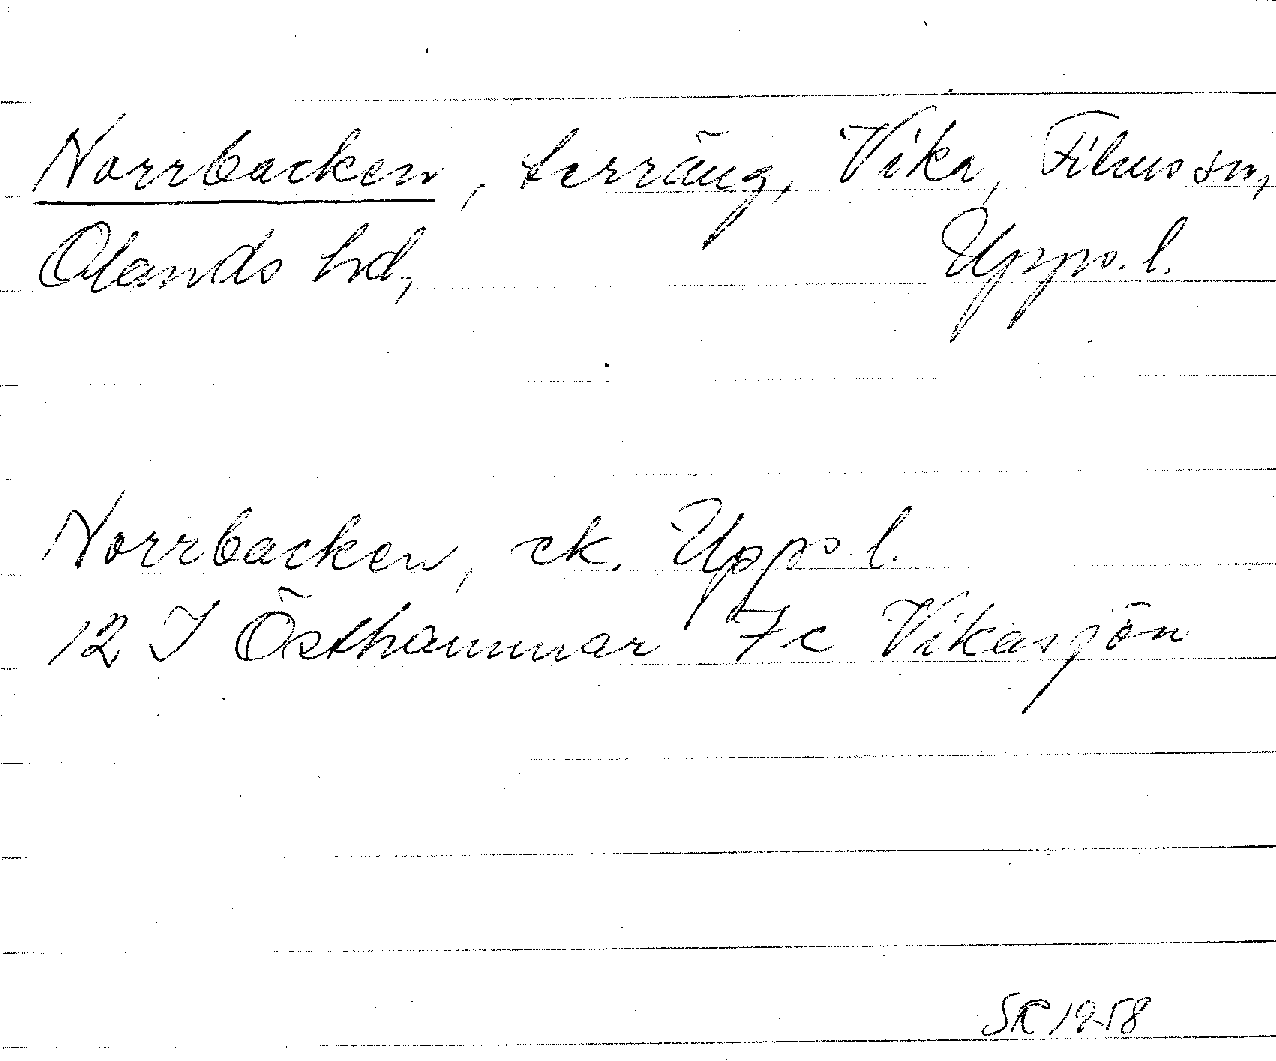 Norrbacken, terräng, Vika, Films sn,
Olands hd, Upps. l.
Norrbacken, ek. Upps l.
12 I Östhammar 7c Vikasjön
SK 1958